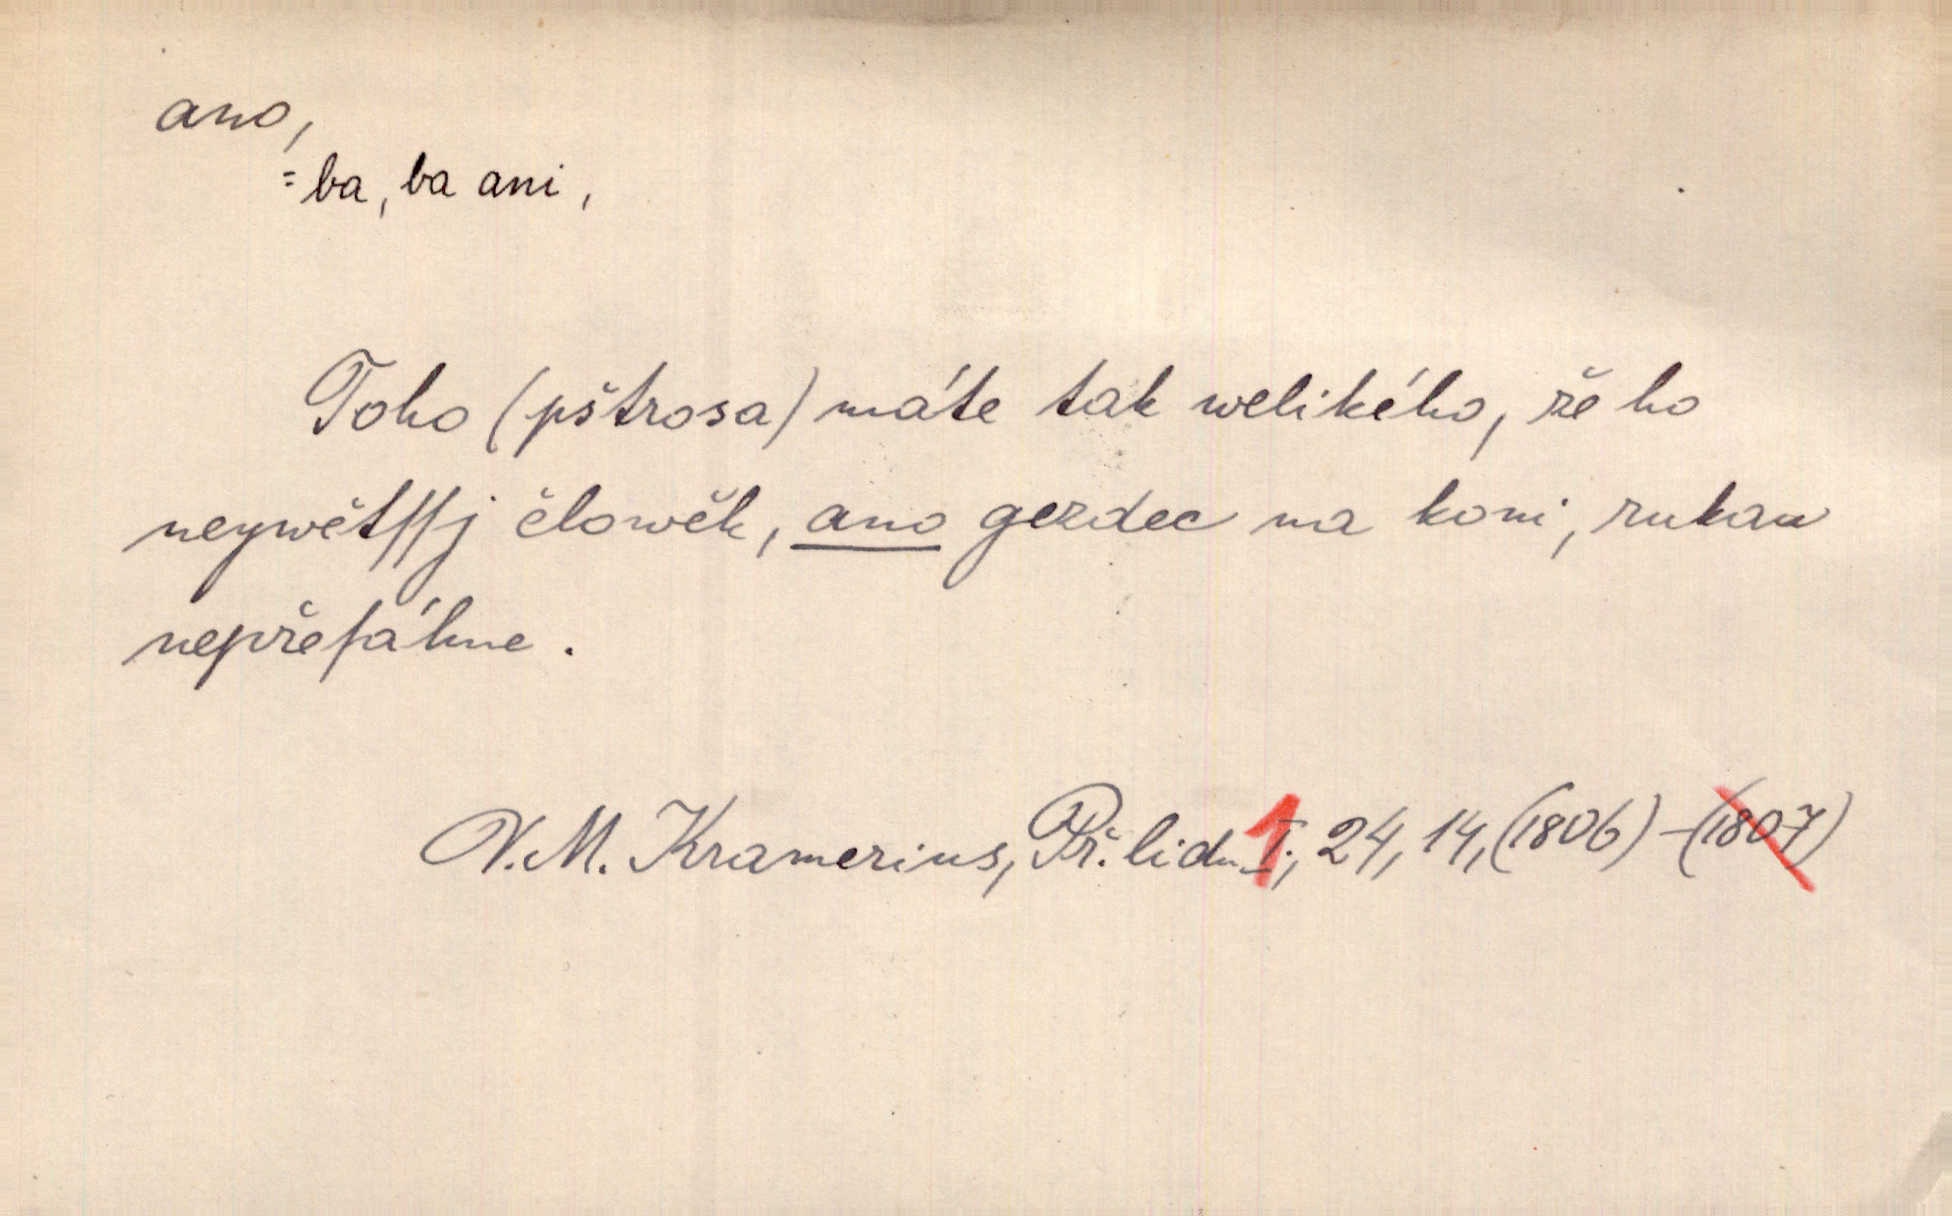 ano,
= ba, ba ani,
Toho (pštrosa) máte tak welikého, že ho
neywětſſj člowěk, ano gezdec na koni, rukau
nepřeſáhne.
V. M. Kramerius, Př. lidu 1, 24, 14, (1806) – (1807)